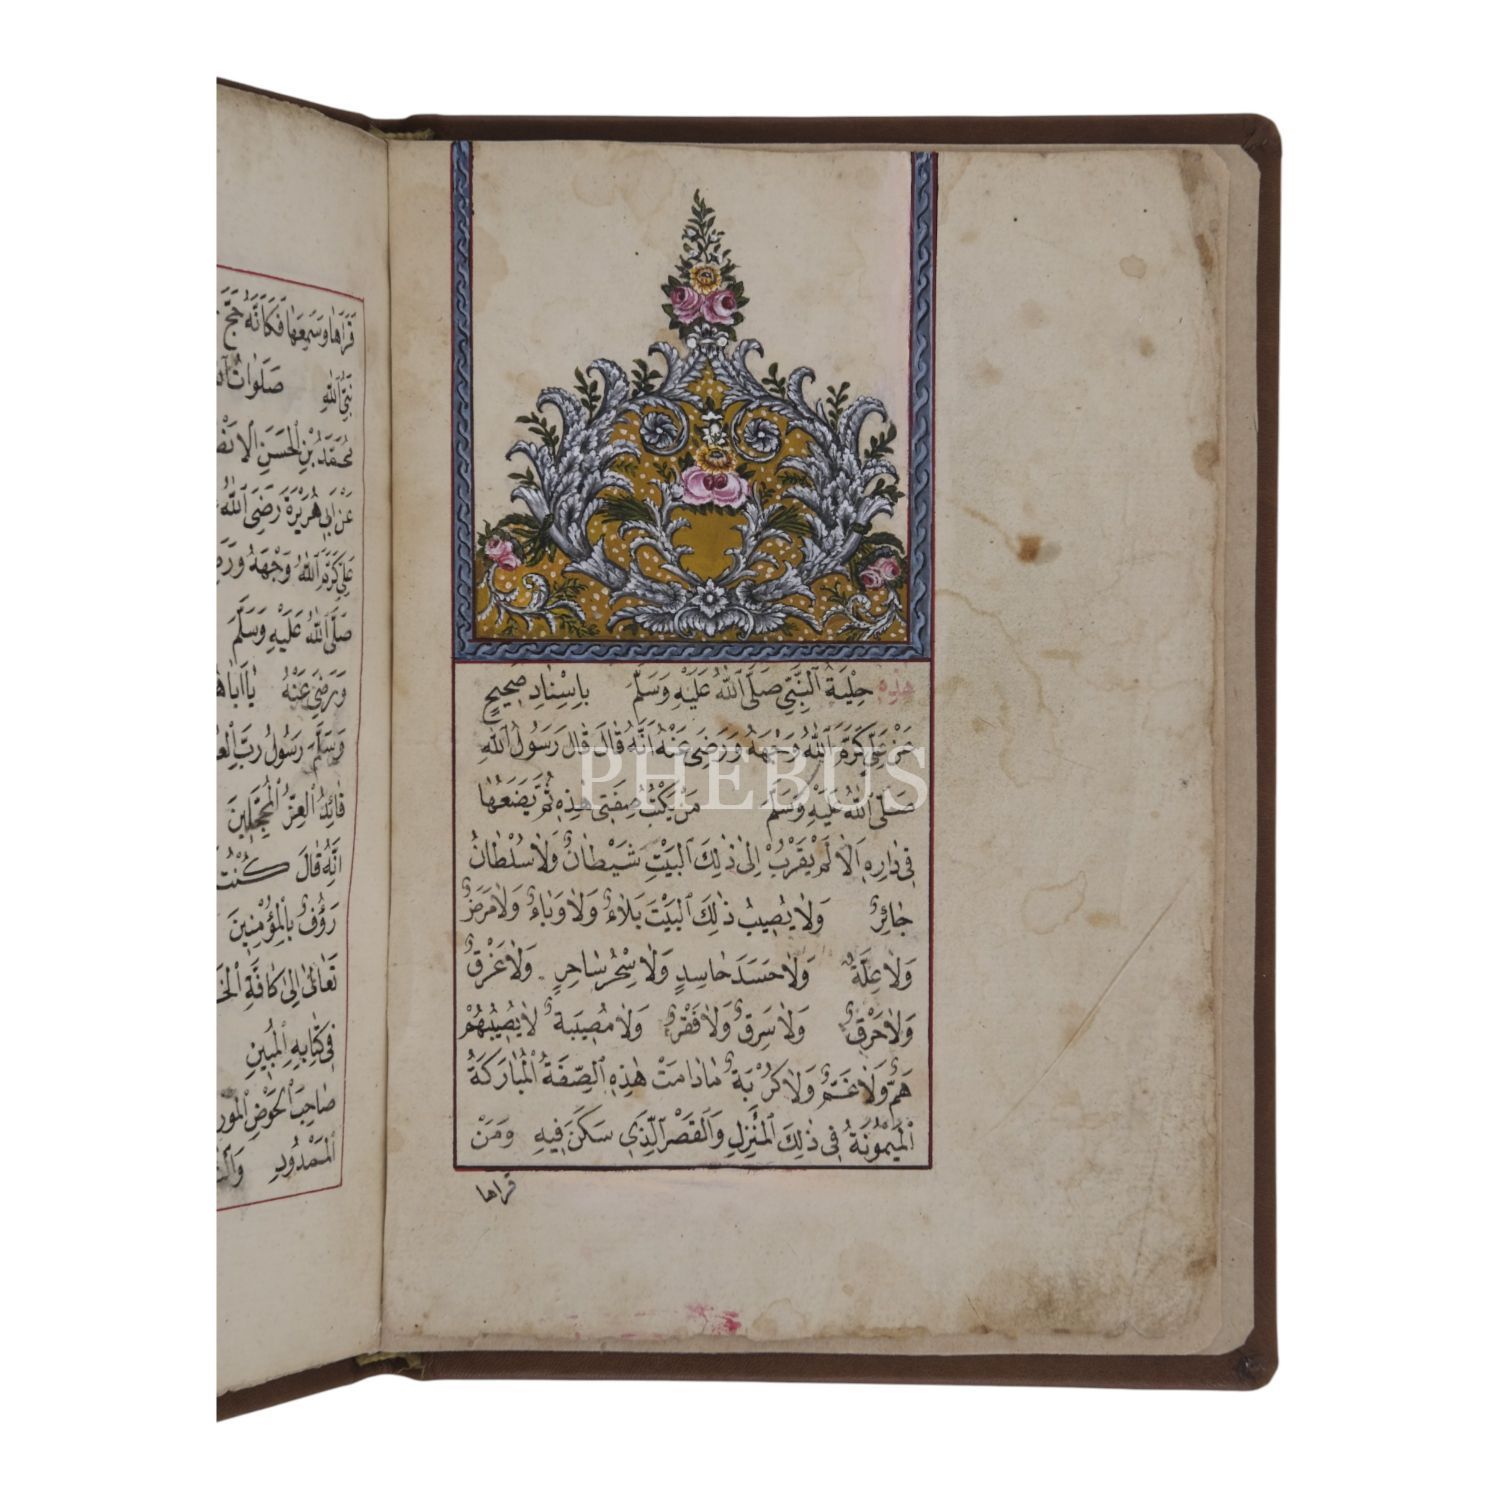 هٰذِهِ حِلْيَةُ النَّبِيِّ صَلَّى اللّٰهُ عَلَيْهِ وَسَلَّمَ بِاِسْنَادٍ صَحِيحٍ
عَنْ عَلِيٍّ كَرَّمَ اللّٰهُ وَجْهَهُ وَرَضِيَ عَنْهُ اَنَّهُ قَالَ قَالَ رَسُولُ اللّٰهِ
صَلَّى اللّٰهُ عَلَيْهِ وَسَلَّمَ مَنْ يَكْتُبْ صِفَتِي هٰذِهِ ثُمَّ يَضَعُهَا
فِي دَارِهِ اِلَّا لَمْ يَقْرُبْ اِلَى ذٰلِكَ الْبَيْتِ شَيْطَانٌ وَلَا سُلْطَانٌ
جَائِرٌ وَلَا يُصِيبُ ذٰلِكَ الْبَيْتَ بَلَاءٌ وَلَا وَبَاءٌ وَلَا مَرَضٌ
وَلَا عِلَّةٌ وَلَا حَسَدَ حَاسِدٍ وَلَا سِحْرُ سَاحِرٍ وَلَا غَرْقٌ
وَلَا حَرْقٌ وَلَا سَرِقٌ وَلَا فَقْرٌ وَلَا مُصِيبَةٌ لَا يُصِيبُهُمْ
هَمٌّ وَلَا غَمٌّ وَلَا كُرْبَةٌ مَا دَامَتْ هٰذِهِ الصِّفَةُ الْمُبَارَكَةُ
الْمَيْمُونَةُ فِي ذٰلِكَ الْمَنْزِلِ وَالْقَصْرِ الَّذِي سَكَنَ فِيهِ وَمَنْ
قراها
PHEBUS
قَرَاَهَا وَسَمِعَهَا فَكَاَنَّهُ حَجَّ
نَبِيِّ اللّٰهِ صَلَوَاتُ
مُحَمَّدُ بْنِ الْحَسَنِ
عَنْ اَبِي هُرَيْرَةَ رَضِيَ اللّٰهُ
عَلِيٍّ كَرَّمَ اللّٰهُ وَجْهَهُ
صَلَّى اللّٰهُ عَلَيْهِ وَسَلَّمَ
وَرَضِيَ عَنْهُ
وَسَلَّمَ رَسُولُ رَبِّ
قَائِدُ الْغُرِّ الْمُحَجَّلِينَ
اَنَّهُ قَالَ كُنْتُ
رَؤُفٌ بِالْمُؤْمِنِينَ
تَعَالٰى اِلٰى كَافَّةِ
فِي كِتَابِهِ الْمُبِينِ
صَاحِبُ الْحَوْضِ
الْمَمْدُودِ